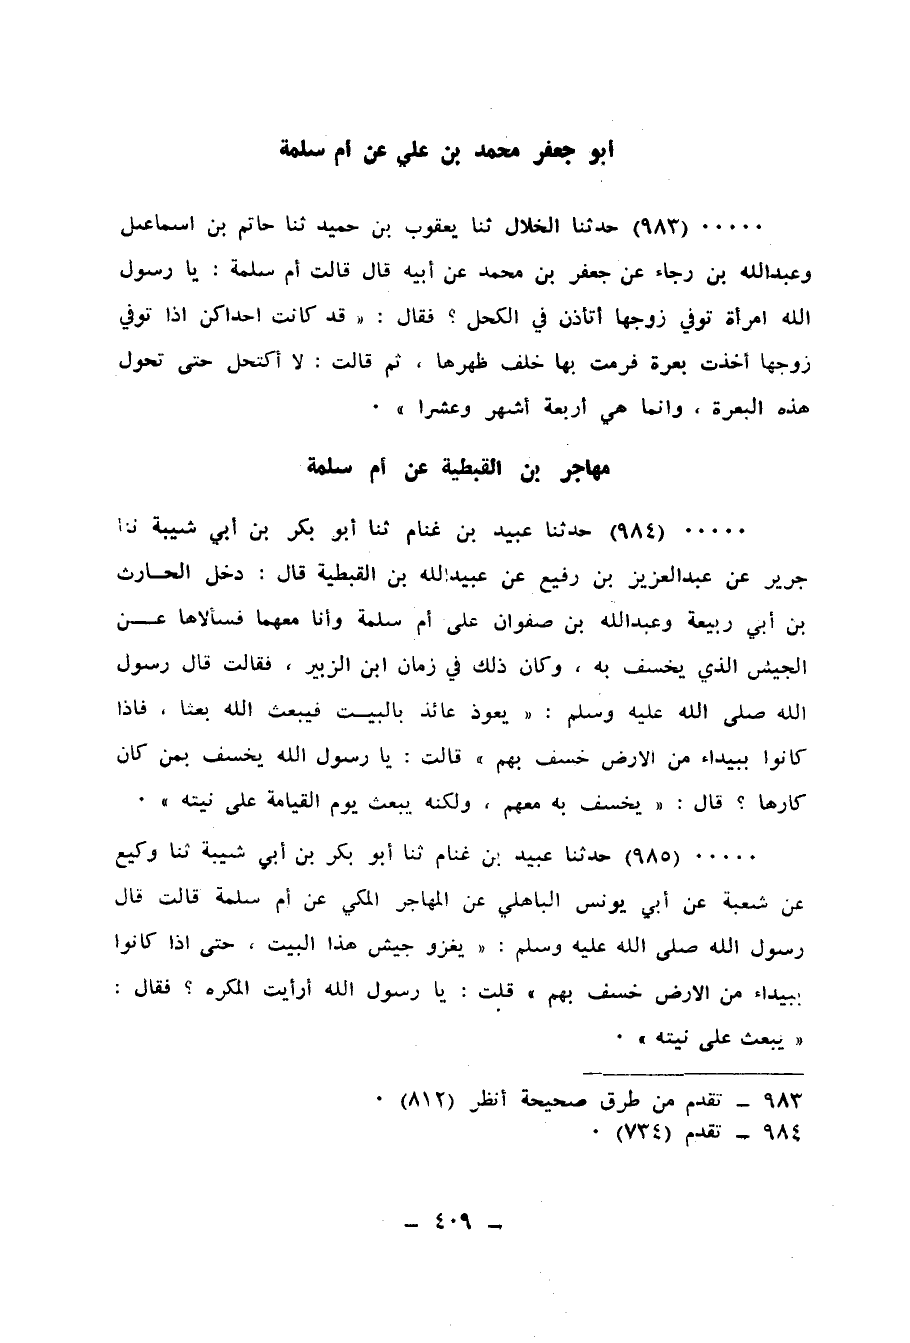 أبو جعفر محمد بن علي عن أم سلمة
٠٠٠٠٠ (٩٨٣) حدثنا الخلال ثنا يعقوب بن حميد ثنا حاتم بن اسماعيل
وعبدالله بن رجاء عن جعفر بن محمد عن أبيه قال قالت أم سلمة : يا رسول
الله امرأة توفي زوجها أتأذن في الكحل ؟ فقال : « قد كانت احداكن اذا توفي
زوجها أخذت بعرة فرمت بها خلف ظهرها ، ثم قالت : لا أكتحل حتى تحول
هذه البعرة ، وانما هي أربعة أشهر وعشرا » ٠
مهاجر بن القبطية عن أم سلمة
٠٠٠٠٠ (٩٨٤) حدثنا عبيد بن غنام ثنا أبو بكر بن أبي شيبة ثنا
جرير عن عبدالعزيز بن رفيع عن عبيدالله بن القبطية قال : دخل الحارث
بن أبي ربيعة وعبدالله بن صفوان على أم سلمة وأنا معهما فسألاها عن
الجيش الذي يخسف به ، وكان ذلك في زمان ابن الزبير ، فقالت قال رسول
الله صلى الله عليه وسلم : « يعوذ عائذ بالبيت فيبعث الله بعثا ، فاذا
كانوا ببيداء من الارض خسف بهم » قالت : يا رسول الله يخسف بمن كان
كارها ؟ قال : « يخسف به معهم ، ولكنه يبعث يوم القيامة على نيته » ٠
٠٠٠٠٠ (٩٨٥) حدثنا عبيد بن غنام ثنا أبو بكر بن أبي شيبة ثنا وكيع
عن شعبة عن أبي يونس الباهلي عن المهاجر المكي عن أم سلمة قالت قال
رسول الله صلى الله عليه وسلم : « يغزو جيش هذا البيت ، حتى اذا كانوا
ببيداء من الارض خسف بهم » قلت : يا رسول الله أرأيت المكره ؟ فقال :
« يبعث على نيته » ٠
٩٨٣ ـ تقدم من طرق صحيحة أنظر (٨١٢) ٠
٩٨٤ ـ تقدم (٧٣٤) ٠
ـ ٤٠٩ ـ